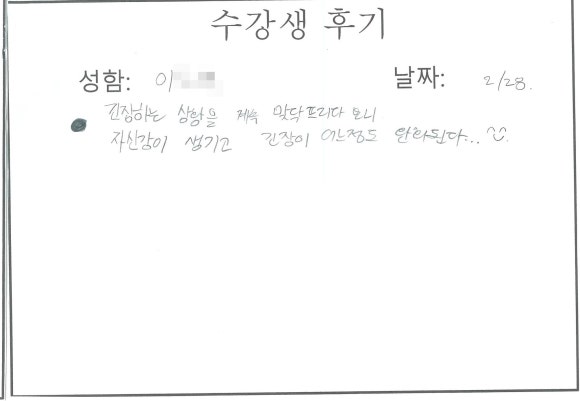 수강생 후기
성함: 이
날짜: 2/28.
긴장하는 상황을 계속 맞닥프리다 보니
자신감이 생기고 긴장이 어느정도 완화된다...